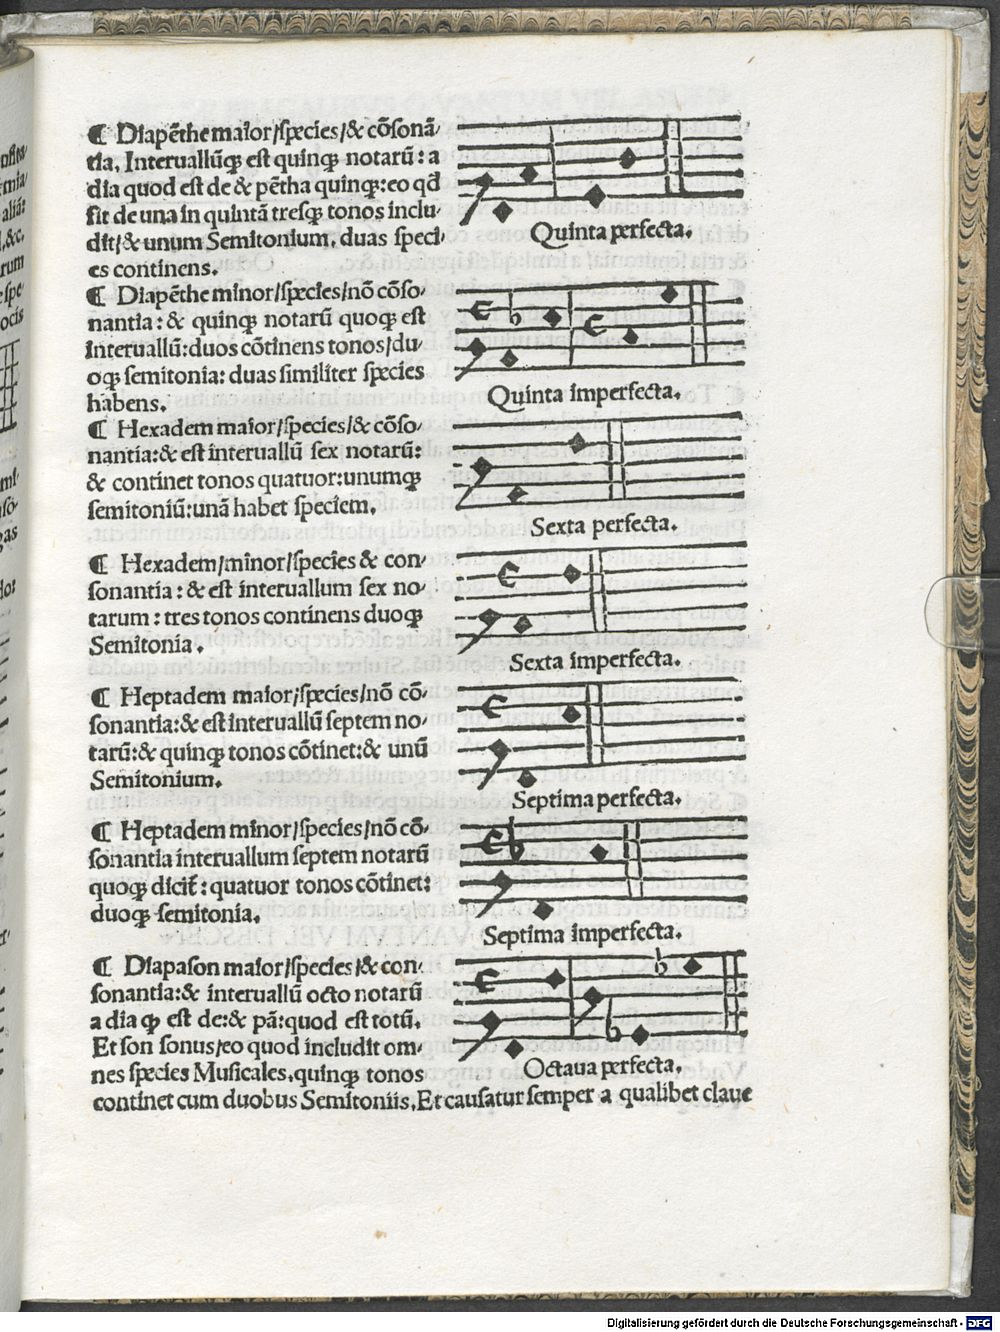 ¶ Diapẽthe maior/species/& cõsonã⸗
tia. Interuallũqꝫ est quinqꝫ notarũ: a
dia quod est de & pẽtha quinqꝫ: eo qđ
sit de una in quintã tresqꝫ tonos inclu⸗
dit/& unum Semitonium. duas speci⸗
es continens.
Quinta perfecta.
¶ Diapẽthe minor/species/nõ cõso⸗
nantia: & quinqꝫ notarũ quoqꝫ est
interuallũ: duos cõtinens tonos/du⸗
oqꝫ semitonia: duas similiter species
habens.
Quinta imperfecta.
¶ Hexadem maior/species/& cõso⸗
nantia: & est interuallũ sex notarũ:
& continet tonos quatuor: unumqꝫ
semitoniũ: unã habet speciem.
Sexta perfecta.
¶ Hexadem/minor/species & con⸗
sonantia: & est interuallum sex no⸗
tarum: tres tonos continens duoqꝫ
Semitonia.
Sexta imperfecta.
¶ Heptadem maior/species/nõ cõ⸗
sonantia: & est interuallũ septem no⸗
tarũ: & quinqꝫ tonos cõtinet: & unũ
Semitonium.
Septima perfecta.
¶ Heptadem minor/species/nõ cõ⸗
sonantia interuallum septem notarũ
quoqꝫ dicit᷑: quatuor tonos cõtinet:
duoqꝫ semitonia.
Septima imperfecta.
¶ Diapason maior/species/& con⸗
sonantia: & interuallũ octo notarũ
a dia qꝫ est de: & pã: quod est totũ.
Et son sonus/eo quod includit om⸗
nes species Musicales. quinqꝫ tonos
Octaua perfecta.
continet cum duobus Semitoniis. Et causatur semper a qualibet claue
Digitalisierung gefördert durch die Deutsche Forschungsgemeinschaft - DFG